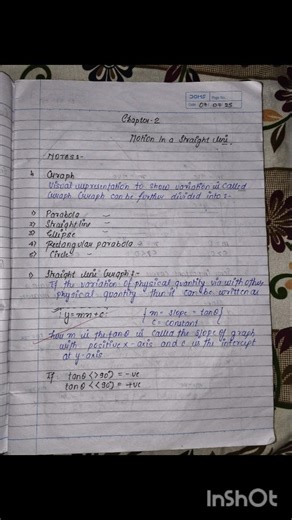 DOMS Page No.
Date 09 07 25
Chapter-2
Motion In a Straight Line
NOTES:-
Graph
Visual representation to show variation is called
Graph Graph can be further divided into:-
1) Parabola
2) Straight line
3) Ellipse
4) Rectangular parabola
5) Circle
Straight Line Graph:-
If the variation of physical quantity via with other
physical quantity then it can be written as
y=mx+c { m- slope = tanθ
c = constant }
m is the tanθ is called the slope of graph
with positive x-axis and c is the intercept
at y-axis
If tanθ (>90°) = -ve
tanθ (<90°) = +ve
InShOt